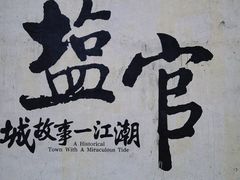 盐官
城故事一江潮
A Historical
Town With A Miraculous Tide